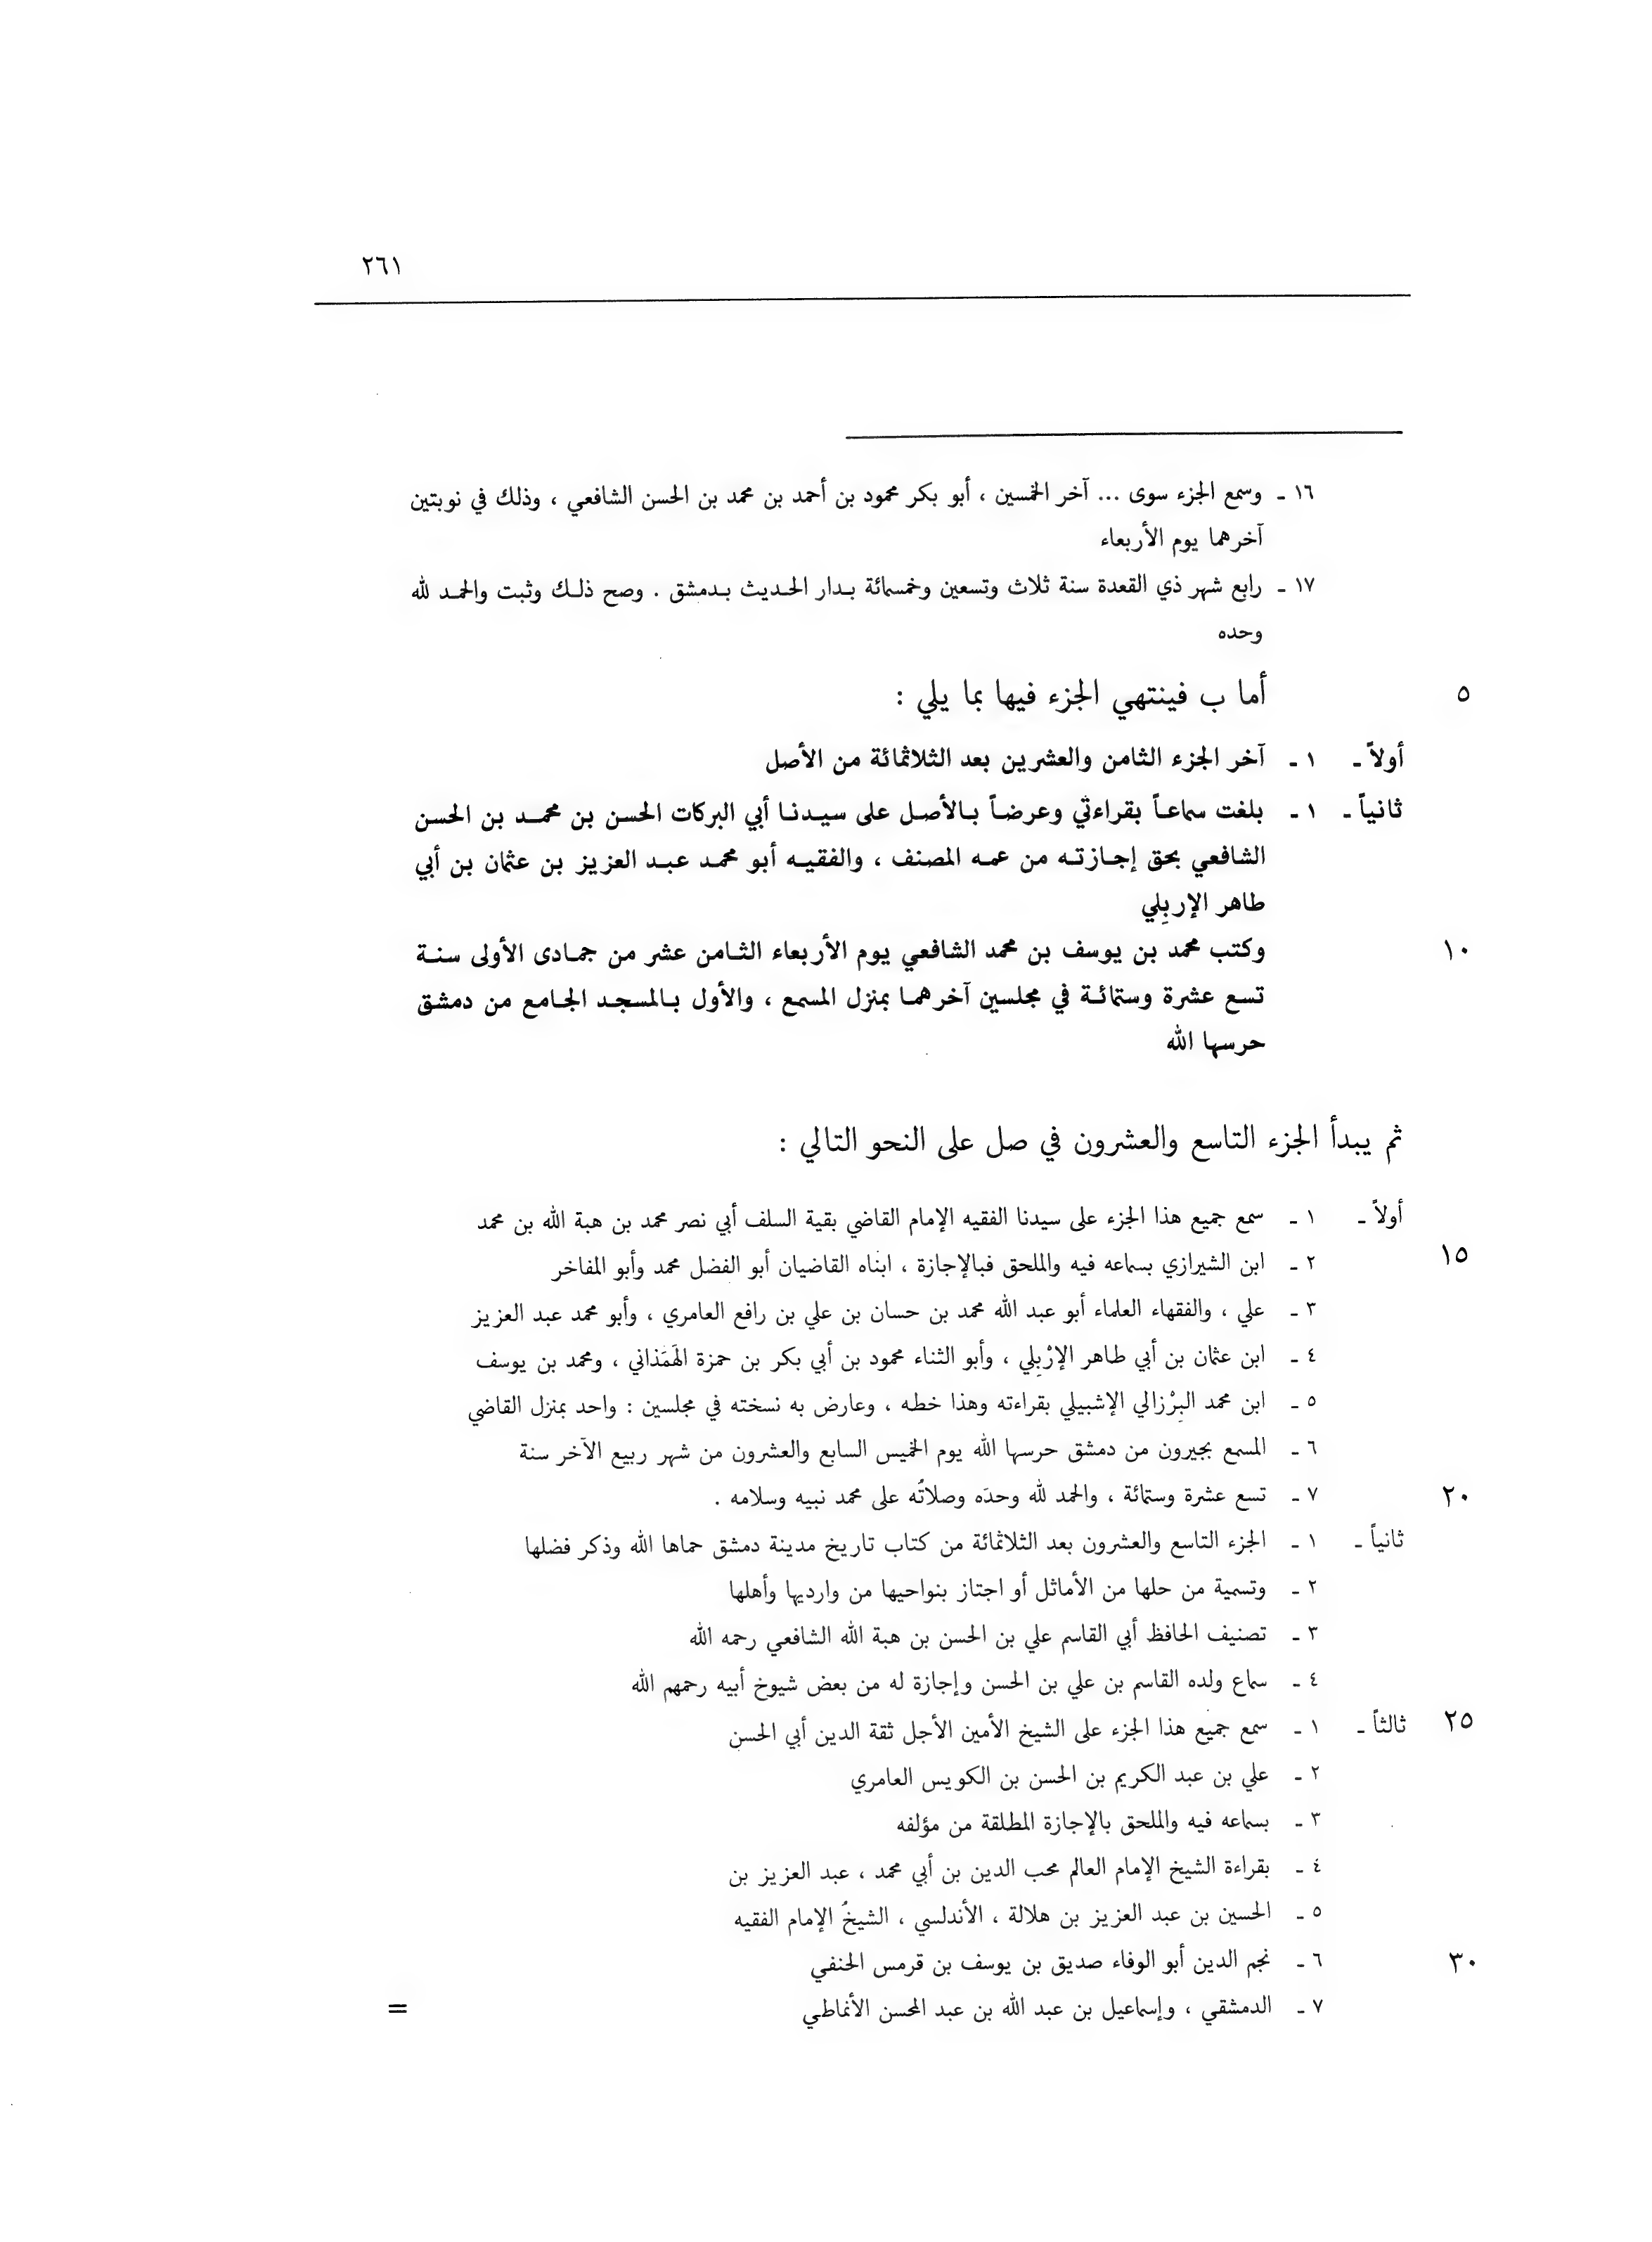 ٢٦١
١٦ ـ وسمع الجزء سوى ... آخر الخمسين ، أبو بكر محمود بن أحمد بن محمد بن الحسن الشافعي ، وذلك في نوبتين
آخرهما يوم الأربعاء
١٧ ـ رابع شهر ذي القعدة سنة ثلاث وتسعين وخمسمائة بـدار الحـديث بـدمشق . وصح ذلـك وثبت والحمـد لله
وحده
٥ أما ب فينتهي الجزء فيها بما يلي :
أولاً ـ ١ ـ آخر الجزء الثامن والعشرين بعد الثلاثمائة من الأصل
ثانياً ـ ١ ـ بلغت سماعـاً بقراءتي وعرضـاً بـالأصـل على سيـدنـا أبي البركات الحسن بن محمـد بن الحسن
الشافعي بحق إجـازتـه من عمـه المصنف ، والفقيـه أبو محمـد عبـد العزيز بن عثمان بن أبي
طاهر الإربِلي
١٠ وكتب محمد بن يوسف بن محمد الشافعي يوم الأربعاء الثـامن عشر من جمـادى الأولى سنـة
تسع عشرة وستمائـة في مجلسين آخرهمـا بمنزل المسمع ، والأول بـالمسجـد الجـامع من دمشق
حرسها الله
ثم يبدأ الجزء التاسع والعشرون في صل على النحو التالي :
أولاً ـ ١ ـ سمع جميع هذا الجزء على سيدنا الفقيه الإمام القاضي بقية السلف أبي نصر محمد بن هبة الله بن محمد
١٥ ٢ ـ ابن الشيرازي بسماعه فيه والملحق فبالإجازة ، ابناه القاضيان أبو الفضل محمد وأبو المفاخر
٣ ـ علي ، والفقهاء العلماء أبو عبد الله محمد بن حسان بن علي بن رافع العامري ، وأبو محمد عبد العزيز
٤ ـ ابن عثمان بن أبي طاهر الإرْبِلي ، وأبو الثناء محمود بن أبي بكر بن حمزة الهَمَذاني ، ومحمد بن يوسف
٥ ـ ابن محمد البِرْزالي الإشبيلي بقراءته وهذا خطه ، وعارض به نسخته في مجلسين : واحد بمنزل القاضي
٦ ـ المسمع بجيرون من دمشق حرسها الله يوم الخميس السابع والعشرون من شهر ربيع الآخر سنة
٢٠ ٧ ـ تسع عشرة وستمائة ، والحمد لله وحدَه وصلاتُه على محمد نبيه وسلامه .
ثانياً ـ ١ ـ الجزء التاسع والعشرون بعد الثلاثمائة من كتاب تاريخ مدينة دمشق حماها الله وذكر فضلها
٢ ـ وتسمية من حلها من الأماثل أو اجتاز بنواحيها من وارديها وأهلها
٣ ـ تصنيف الحافظ أبي القاسم علي بن الحسن بن هبة الله الشافعي رحمه الله
٤ ـ سماع ولده القاسم بن علي بن الحسن وإجازة له من بعض شيوخ أبيه رحمهم الله
٢٥ ثالثاً ـ ١ ـ سمع جميع هذا الجزء على الشيخ الأمين الأجل ثقة الدين أبي الحسن
٢ ـ علي بن عبد الكريم بن الحسن بن الكويس العامري
٣ ـ بسماعه فيه والملحق بالإجازة المطلقة من مؤلفه
٤ ـ بقراءة الشيخ الإمام العالم محب الدين بن أبي محمد ، عبد العزيز بن
٥ ـ الحسين بن عبد العزيز بن هلالة ، الأندلسي ، الشيخُ الإمام الفقيه
٣٠ ٦ ـ نجم الدين أبو الوفاء صديق بن يوسف بن قرمس الحنفي
٧ ـ الدمشقي ، وإسماعيل بن عبد الله بن عبد المحسن الأنماطي =